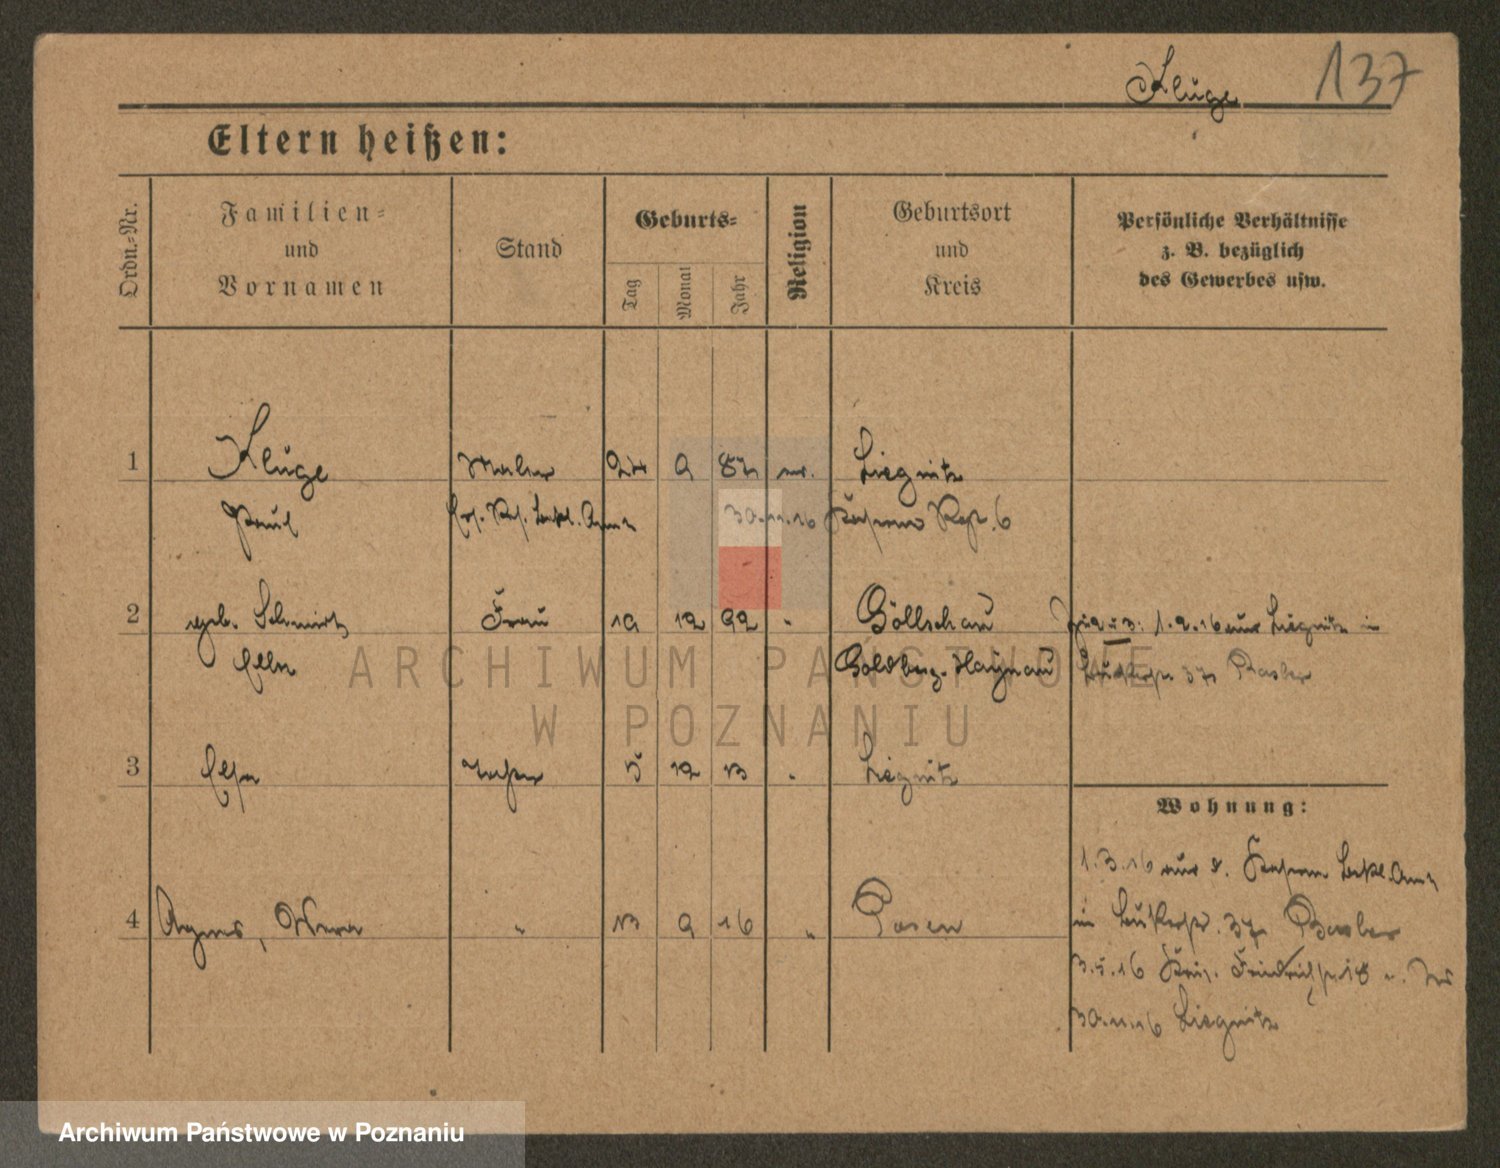 Kluge 137
Eltern heißen:
Ordn.-Nr.
Familien-
und
Vornamen
Stand
Geburts-
Tag
Monat
Jahr
Religion
Geburtsort
und
Kreis
Persönliche Verhältnisse
z. B. bezüglich
des Gewerbes usw.
1 Kluge Maler 24 9 87 ev. Liegnitz
Paul 30.11.16 Rgt. 6
2 geb. Schmidt Frau 19 12 92 " Göllschau 1.2.16 aus Liegnitz in
Ella Goldberg-Haynau 37
3 Else Tochter 5 12 13 " Liegnitz
Wohnung:
1.3.16
4 Agnes, Wera " 13 9 16 " Posen in 37
3.5.16 Friedrichstr. 18
30.11.16 Liegnitz
ARCHIWUM PAŃSTWOWE
W POZNANIU
Archiwum Państwowe w Poznaniu